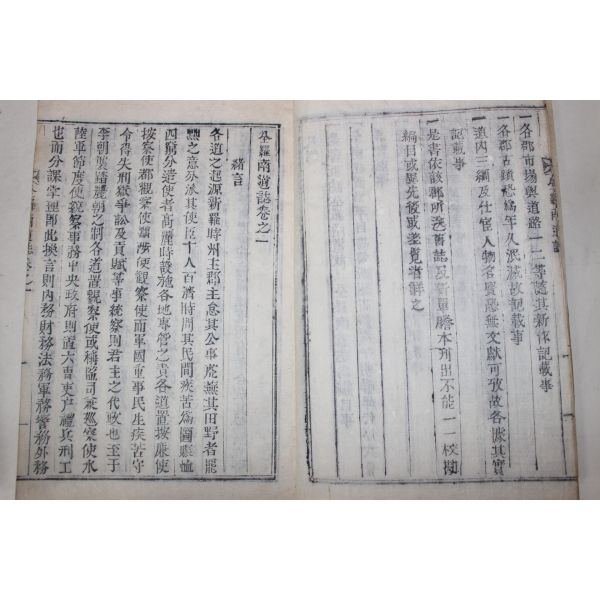 一各郡市場與道路一二等誌其新修記載事
一各郡古蹟恐爲年久泯滅故記載事
一道內三綱及仕宦人物名賢恐無文獻可攷故各據其實
記載事
一是書依該郡所送舊誌及新單謄本刊出不能一一校
編目或 先後 之
全羅南道誌卷之一
緒言
各道之起源新羅時州主郡主怠其公事虎蕪其田野者罷
黜之意分派其使臣十人百濟時問其民間疾苦爲圖縣恤
四類分遣使者高麗時設施各地專管之責各道置按廉使
按察使都觀察使 使觀察使而軍國重事民生疾苦守
令得失刑獄爭訟及貢賦等事統察則君主之代攸也至于
李朝襲踏麗朝之制各道置觀察使或稱監司兼巡察使水
陸軍節度使觀察事務中央政府則置六曹吏戶禮兵刑工
也而分課掌理卽此換言則內務財務法務軍務警務外務